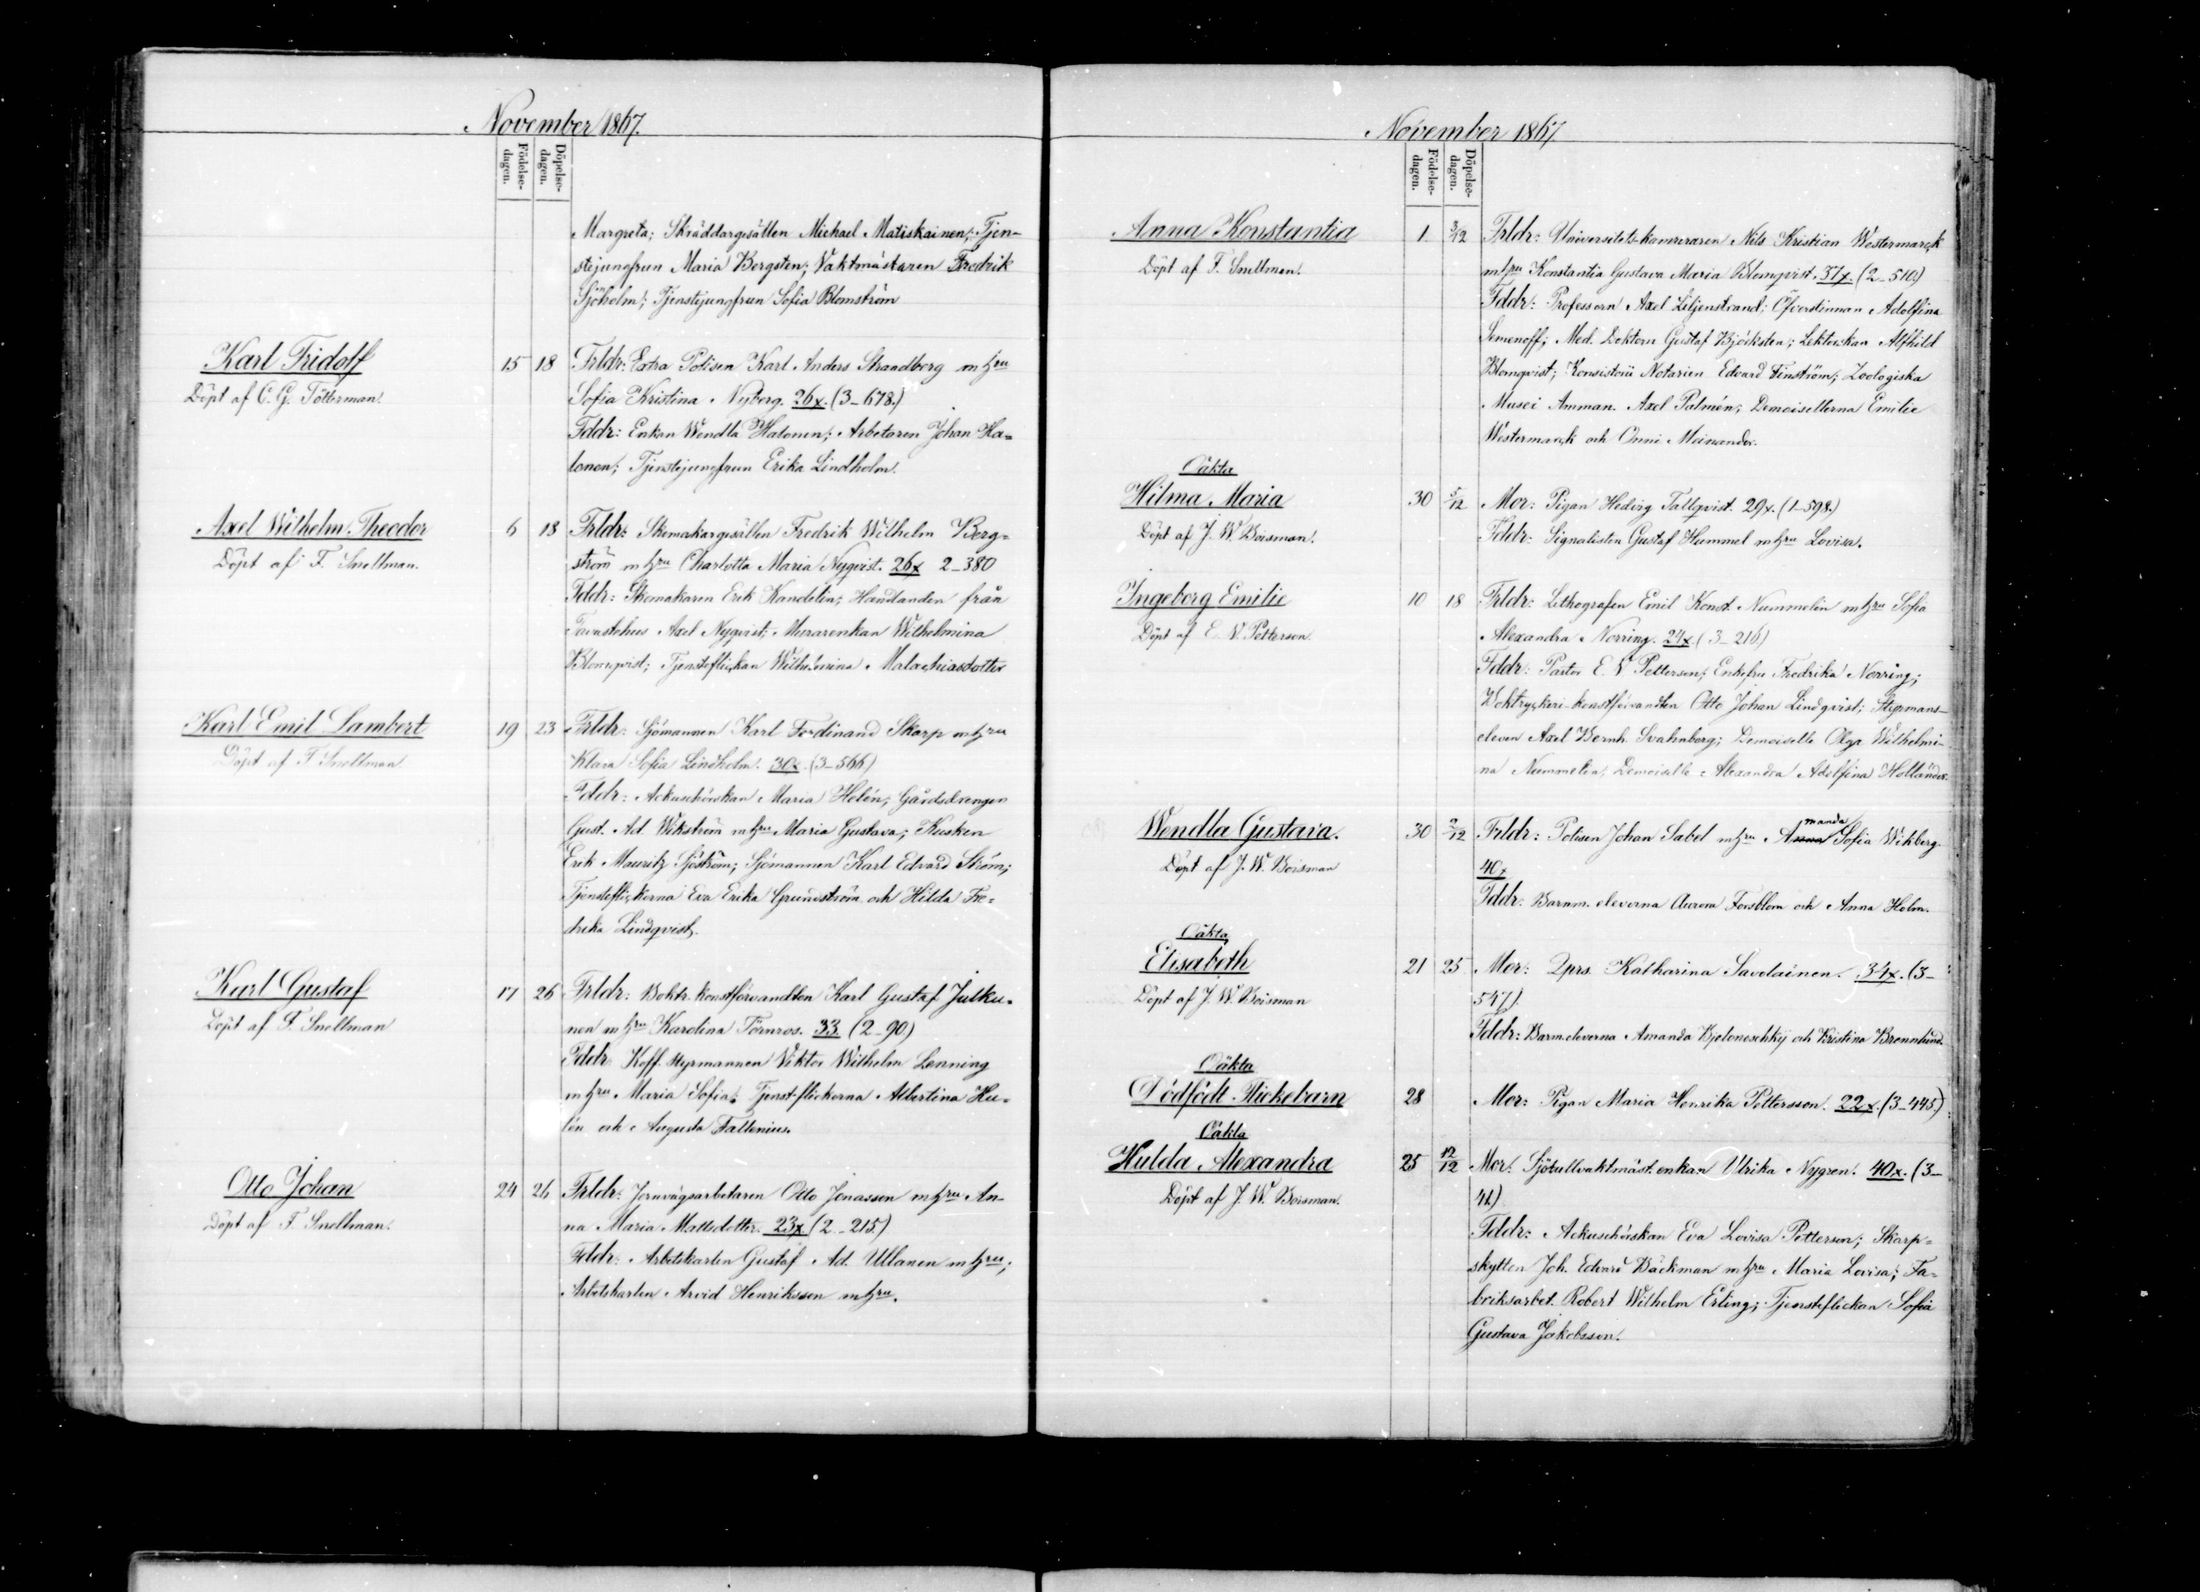 November 1867.
Födelse-
dagen.
Döpelse-
dagen.
Margreta; Skräddargesällen Michael Matiskainen; Tjen-
stejungfrun Maria Bergsten; Vaktmästaren Fredrik
Sjöholm; Tjenstejungfrun Sofia Blomström
Karl Fridolf
Döpt af C. G. Tötterman.
15 18
Frldr: Extra Polisen Karl Anders Strandberg m hru
Sofia Kristina Nyberg. 26x. (3-678.)
Fddr: Enkan Wendla Halonen; Arbetaren Johan Ha-
lonen; Tjenstejungfrun Erika Lindholm.
Axel Wilhelm Theodor
Döpt af F. Snellman.
6 18
Frldr: Skomakargesällen Fredrik Wilhelm Berg-
ström m hru Charlotta Maria Nyqvist. 26x 2-380
Fddr: Skomakaren Erik Kandelin; Handlanden från
Tavastehus Axel Nyqvist; Murarenkan Wilhelmina
Blomqvist; Tjensteflickan Wilhelmina Malachiasdotter
Karl Emil Lambert
Döpt af F Snellman
19 23
Frldr: Sjömannen Karl Ferdinand Skarp m hru
Klara Sofia Lindholm. 30x. (3-566)
Fddr: Ackuschörskan Maria Helén; Gårdsdrengen
Gust. Ad. Wikström m hru Maria Gustava; Kusken
Erik Mauritz Sjöström; Sjömannen Karl Edvard Ström;
Tjensteflickorna Eva Erika Grundström och Hilda Fre-
drika Lindqvist.
Karl Gustaf
Döpt af F. Snellman
17 26
Frldr: Boktr. konstförvandten Karl Gustaf Julku-
nen m hru Karolina Törnroos. 33. (2-90)
Fddr Koff. styrmannen Viktor Wilhelm Lenning
m hru Maria Sofia; Tjenst-flickorna Albertina Hu-
lén och Augusta Fallenius.
Otto Johan
Döpt af F. Snellman.
24 26
Frldr: Jernvägsarbetaren Otto Jonasson m hru An-
na Maria Mattsdotter. 23x (2-215.)
Fddr: Arbetskarlen Gustaf Ad. Ullanen m hru;
Arbetskarlen Arvid Henriksson m hru.
November 1867.
Födelse-
dagen.
Döpelse-
dagen.
Anna Konstantia
Döpt af F. Snellman.
1. 3/12
Frldr: Universitets-kamreraren Nils Kristian Westermarck
m hru Konstantia Gustava Maria Blomqvist. 37x. (2-510.)
Fddr: Professorn Axel Liljenstrand; Öfverstinnan Adolfina
Semenoff; Med. Doktorn Gustaf Björksten; Lektorskan Alfhild
Blomqvist; Konsistorii Notarien Edvard Finström; Zoologiska
Musei Amman. Axel Palmén; Demoisellerna Emilie
Westermarck och Onni Meinander.
Oäkta
Hilma Maria
Döpt af J. W. Boisman.
30 5/12
Mor: Pigan Hedvig Tallqvist. 29x. (1-598.)
Fddr: Signalisten Gustaf Hummel m hru Lovisa.
Ingeborg Emilie
Döpt af E. V. Petterson.
10 18
Frldr: Lithografen Emil Konst. Nummelin m hru Sofia
Alexandra Norring. 24x (3-216)
Fddr: Pastor E. V Petterson; Enkefru Fredrika Norring;
Boktryckeri-konstförvandten Otto Johan Lindqvist; Styrmans-
eleven Axel Bernh. Svahnberg; Demoiselle Olga Wilhelmi-
na Nummelin; Demoiselle Alexandra Adolfina Holländer.
Wendla Gustava.
Döpt af J. W. Boisman
30 2/12
manda
Frldr: Polisen Johan Sabel m hru Anna Sofia Wikberg.
40x
Fddr: Barnm. eleverna Aurora Forsblom och Anna Holm.
Oäkta
Elisabeth
Döpt af J. W. Boisman
21 25
Mor: Qprs. Katharina Savolainen. 34x. (3-
547).
Fddr: Barm.eleverna Amanda Bjeloneschkij och Kristina Brennlund.
Oäkta
Dödfödt Flickebarn
28
Mor: Pigan Maria Henrika Pettersson. 22x. (3-445.)
Oäkta
Hulda Alexandra
Döpt af J. W. Boisman.
25 12/12
Mor: Sjötullvaktmäst. enkan Ulrika Nygren. 40x. (3-
41.)
Fddr: Ackuschörskan Eva Lovisa Petterson; Skarp-
skytten Joh. Edvard Bäckman m hru Maria Lovisa; Fa-
briksarbet. Robert Wilhelm Erling; Tjensteflickan Sofia
Gustava Jakobsson.